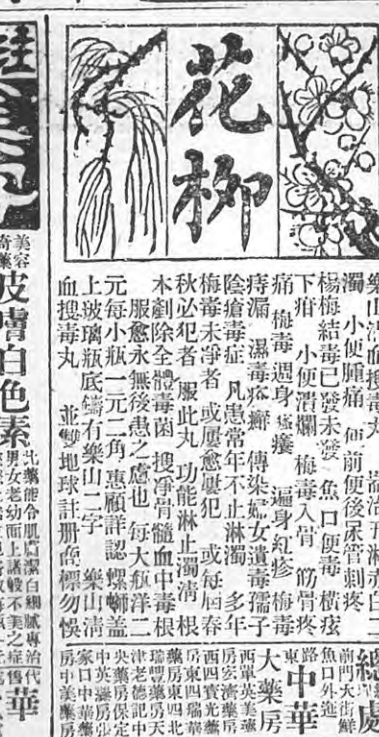 花柳
樂山清血搜毒丸 專治五淋赤白二
濁 小便腫痛 便前便後尿管刺疼
楊梅結毒已發未發 魚口便毒橫痃
下疳 小便潰爛 梅毒入骨 筋骨疼
痛 梅毒週身瘙癢 遍身紅疹 梅毒
痔漏 濕毒疥癬 傳染婦女遺毒孺子
陰瘡毒症 凡患常年不止淋濁 多年
梅毒未淨者 或屢愈屢犯 或每屆春
秋必犯者 服此丸 功能淋止濁清 根
本剷除全體毒菌 搜淨骨髓血中毒根
服愈永無後患之慮也 每大瓶洋二
元每小瓶一元二角惠顧詳認螺螄蓋
上玻璃瓶底鑄有樂山二字 樂山清
血搜毒丸 並雙地球註册商標勿悞
總處
前門大街鮮
魚口外迤
路東
中華
大藥房
西單英美藥
房宏濟藥房
西四寶光藥
房東四瑞華
藥房東四北
瑞豐藥房天
津老德記中
央藥房保定
中英藥房張
家口中華藥
房中美藥房
美容
奇藥
皮膚白色素
此藥能令肌膚潔白細膩專治代
男女老幼面上諸般不美之症售
華